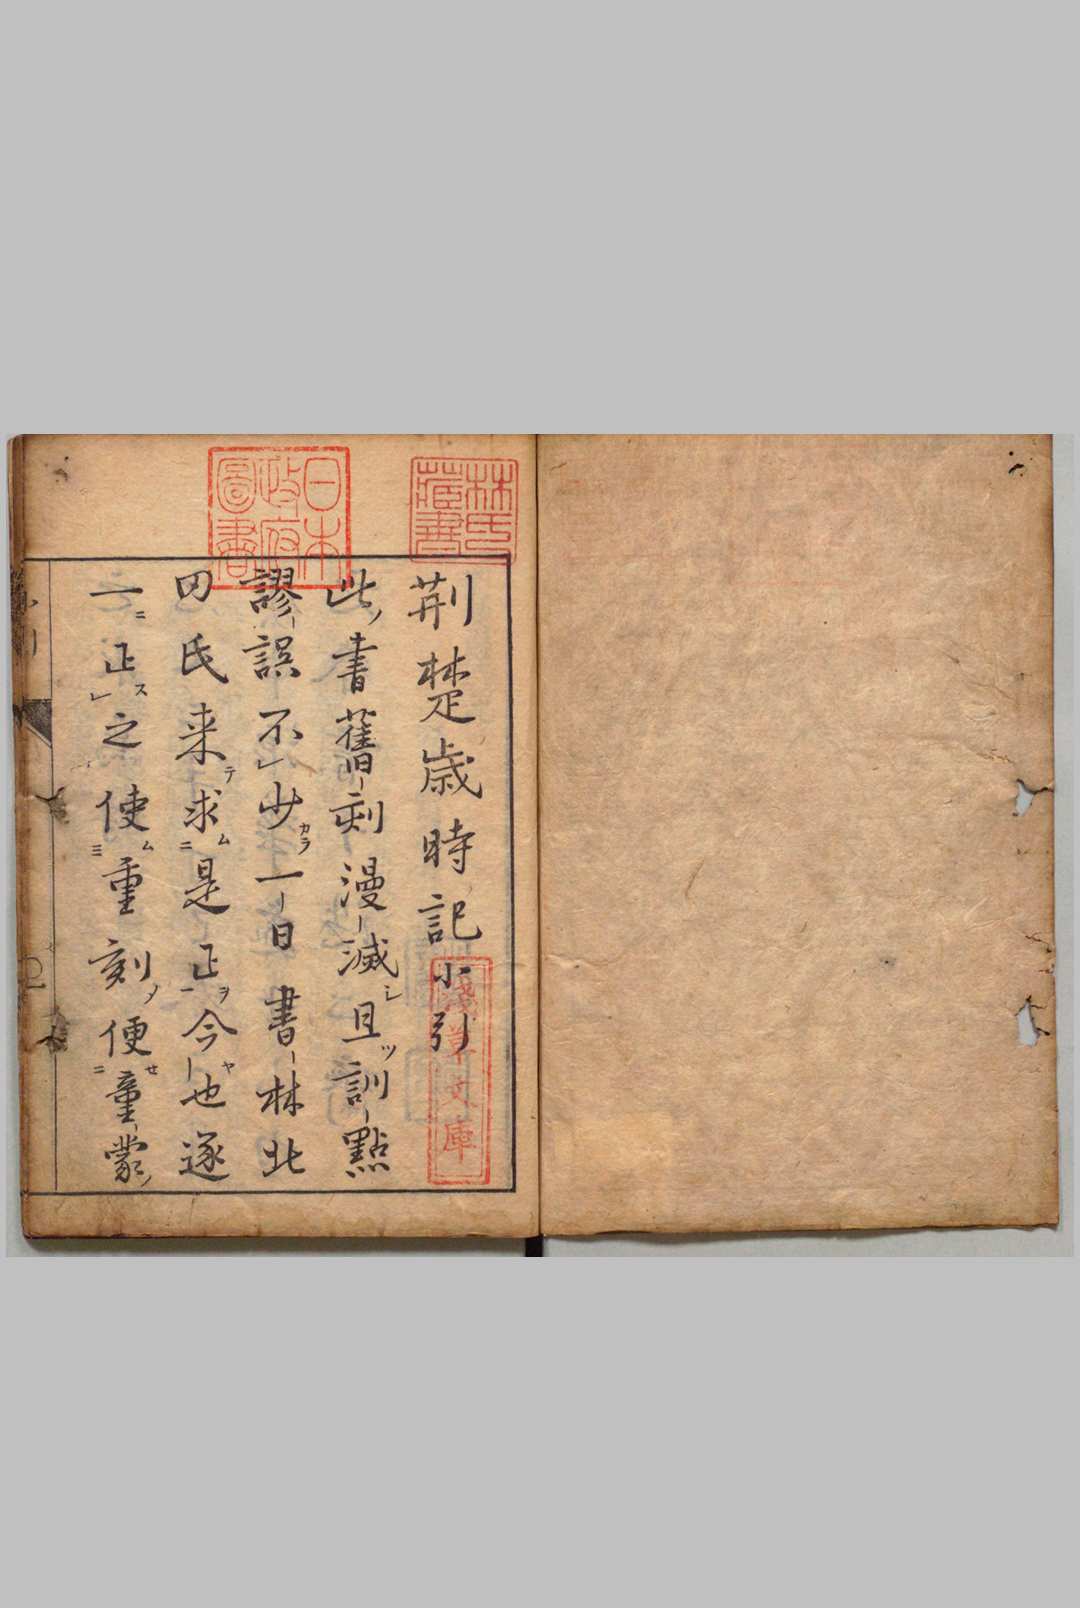 林氏藏書
荊楚歳時記小引
淺草文庫
日本政府圖書
此ノ書舊刻漫滅シ且ツ訓點
謬誤不レ少カラ一日書林北
田氏来テ求ム二是正ヲ一今ヤ也遂
一ニ正スレ之使ム三重刻メ便セ二童蒙ノ